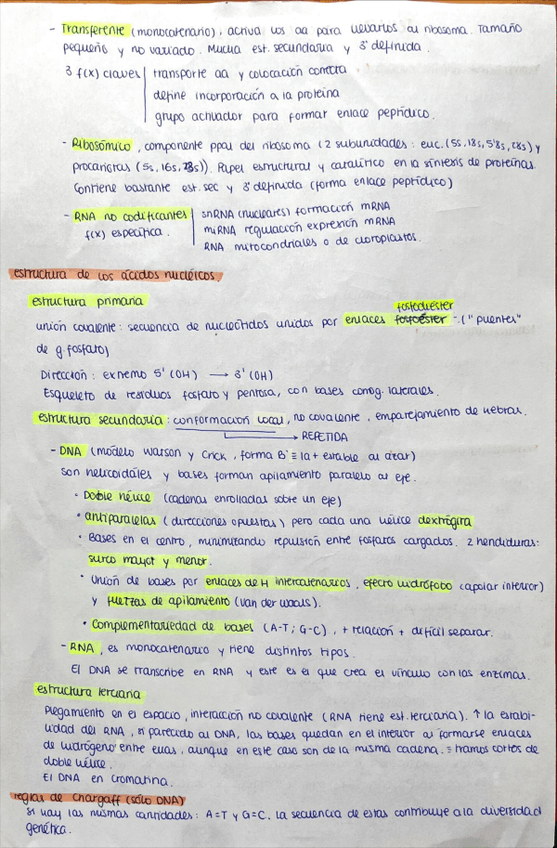 - Transferente (monocatenario), activa los aa para llevarlos al ribosoma. Tamaño
pequeño y no variado. Mucha est. secundaria y 3ª definida.
3 f(x) claves | transporte aa y colocación correcta
define incorporación a la proteína
grupo activador para formar enlace peptídico.
- Ribosómico, componente ppal del ribosoma (2 subunidades: euc. (5s, 18s, 5'8s, 28s) y
procariotas (5s, 16s, 23s)). Papel estructural y catalítico en la síntesis de proteínas.
Contiene bastante est. sec y 3ª definida (forma enlace peptídico)
- RNA no codificantes | snRNA (nucleares) formación mRNA
f(x) específica. | miRNA regulación expresión mRNA
RNA mitocondriales o de cloroplastos.
estructura de los ácidos nucleicos
estructura primaria
fosfodiéster
unión covalente: secuencia de nucleótidos unidos por enlaces fosfoéster -. ("puentes"
de g. fosfato)
Dirección: extremo 5' (OH) → 3' (OH)
Esqueleto de residuos fosfato y pentosa, con bases conog. laterales.
estructura secundaria: conformación local, no covalente, emparejamiento de hebras.
→ REPETIDA
- DNA (modelo Watson y Crick, forma B' ≡ la + estable al azar)
son helicoidales y bases forman apilamiento paralelo al eje.
· Doble hélice (cadenas enrolladas sobre un eje)
· antiparalelas (direcciones opuestas) pero cada una hélice dextrógira
· Bases en el centro, minimizando repulsión entre fosfatos cargados. 2 hendiduras:
surco mayor y menor.
· Unión de bases por enlaces de H intercatenarios, efecto hidrófobo (apolar interior)
y fuerzas de apilamiento (van der waals).
· Complementariedad de bases (A-T; G-C), + relación + difícil separar.
- RNA, es monocatenario y tiene distintos tipos.
El DNA se transcribe en RNA y este es el que crea el vínculo con las enzimas.
estructura terciaria
Plegamiento en el espacio, interacción no covalente (RNA tiene est. terciaria). ↑ la estabi-
lidad del RNA, si parecido al DNA, las bases quedan en el interior al formarse enlaces
de hidrógeno entre ellas, aunque en este caso son de la misma cadena. = tramos cortos de
doble hélice.
El DNA en cromatina.
reglas de Chargaff (sólo DNA)
Si hay las mismas cantidades: A=T y G=C. La secuencia de estas contribuye a la diversidad
genética.